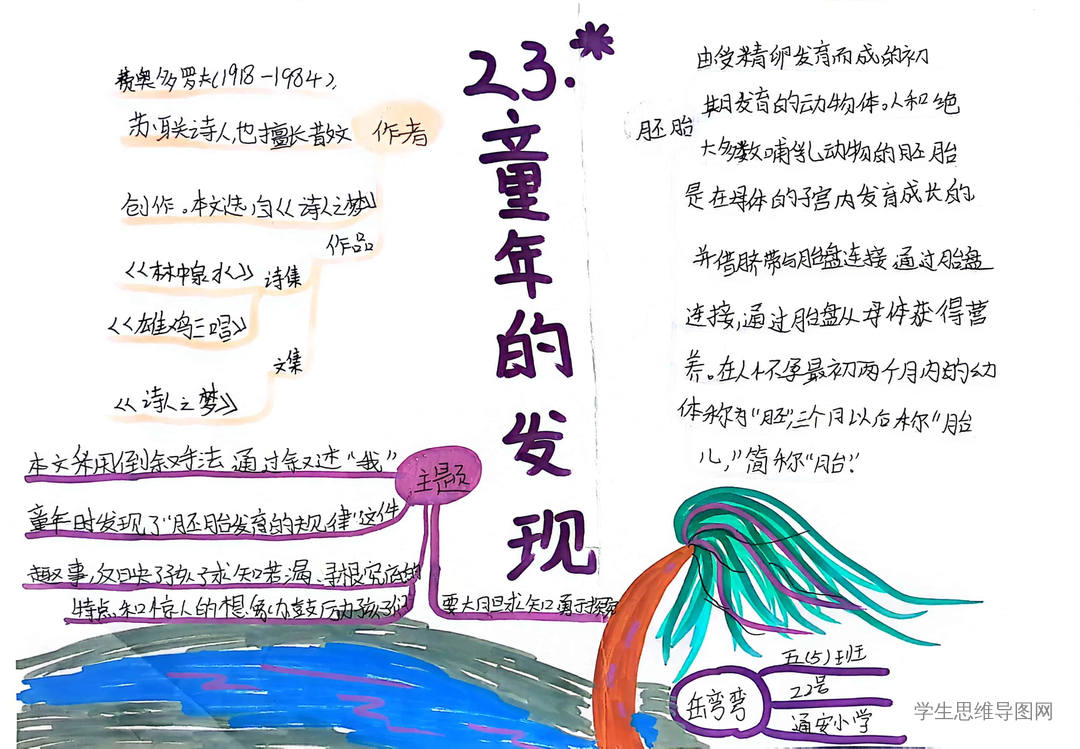 23.*童年的发现
费奥多罗夫(1918-1984),
苏联诗人,也擅长散文
作者
创作。本文选自《诗人之梦》
作品
《林中泉水》
诗集
《雄鸡三唱》
文集
《诗人之梦》
主题
本文采用倒叙手法 通过叙述“我”
童年时发现了“胚胎发育的规律”这件
趣事,反映了孩子求知若渴、寻根究底的
特点和惊人的想象力鼓励孩子们
要大胆求知勇于探索
胚胎
由受精卵发育而成的初
期发育的动物体。人和绝
大多数哺乳动物的胚胎
是在母体的子宫内发育成长的,
并借脐带与胎盘连接 通过胎盘
连接,通过胎盘从母体获得营
养。在人怀孕最初两个月内的幼
体称为“胚”,三个月以后称“胎
儿,”简称“胎”.
岳弯弯
五(5)班
22号
通安小学
学生思维导图网